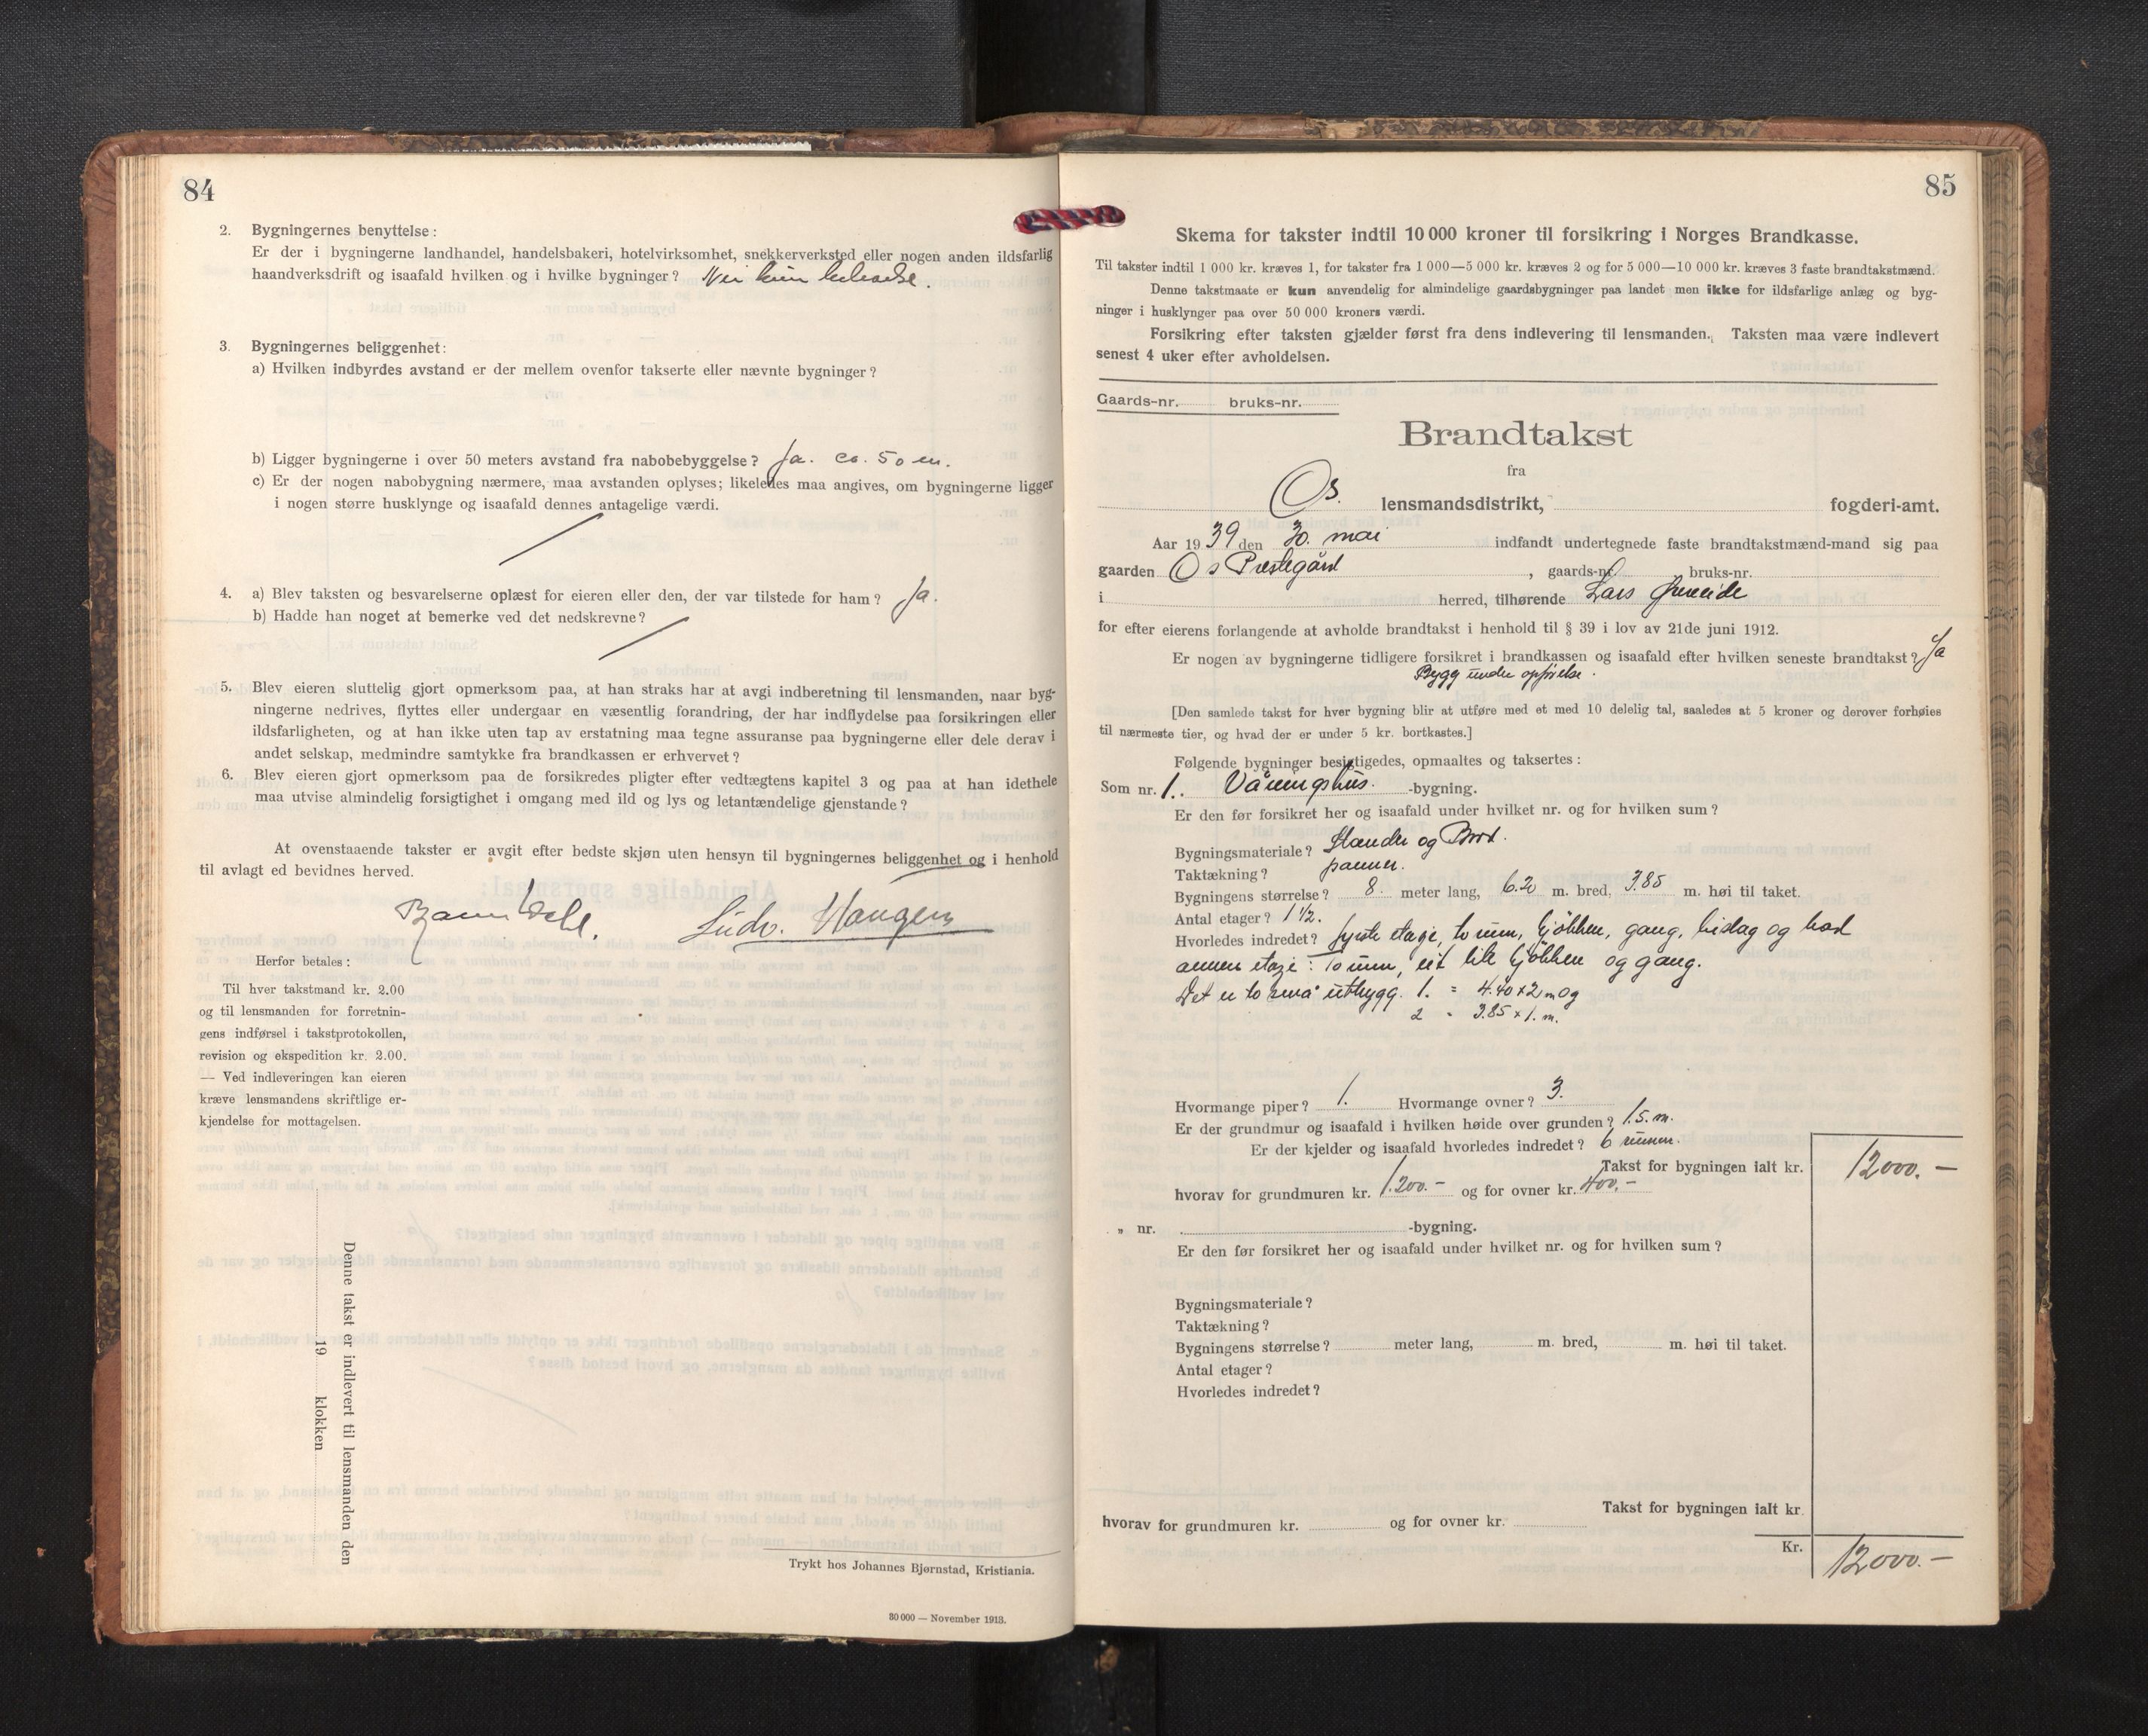 84
2. Bygningernes benyttelse:
Er der i bygningerne landhandel, handelsbakeri, hotelvirksomhet, snekkerverksted eller nogen anden ildsfarlig
haandverksdrift og isaafald hvilken og i hvilke bygninger? Nei kun beboelse.
3. Bygningernes beliggenhet:
a) Hvilken indbyrdes avstand er der mellem ovenfor takserte eller nævnte bygninger?
b) Ligger bygningerne i over 50 meters avstand fra nabobebyggelse? Ja. ca. 50 m.
c) Er der nogen nabobygning nærmere, maa avstanden oplyses; likeledes maa angives, om bygningerne ligger
i nogen større husklynge og isaafald dennes antagelige værdi.
4. a) Blev taksten og besvarelserne oplæst for eieren eller den, der var tilstede for ham? Ja.
b) Hadde han noget at bemerke ved det nedskrevne?
5. Blev eieren sluttelig gjort opmerksom paa, at han straks har at avgi indberetning til lensmanden, naar byg-
ningerne nedrives, flyttes eller undergaar en væsentlig forandring, der har indflydelse paa forsikringen eller
ildsfarligheten, og at han ikke uten tap av erstatning maa tegne assuranse paa bygningerne eller dele derav i
andet selskap, medmindre samtykke fra brandkassen er erhvervet?
6. Blev eieren gjort opmerksom paa de forsikredes pligter efter vedtægtens kapitel 3 og paa at han idethele
maa utvise almindelig forsigtighet i omgang med ild og lys og letantændelige gjenstande?
At ovenstaaende takster er avgit efter bedste skjøn uten hensyn til bygningernes beliggenhet og i henhold
til avlagt ed bevidnes herved.
Ludv. Haugen
Herfor betales:
Til hver takstmand kr. 2.00
og til lensmanden for forretnin-
gens indførsel i takstprotokollen,
revision og ekspedition kr. 2.00.
— Ved indleveringen kan eieren
kræve lensmandens skriftlige er-
kjendelse for mottagelsen.
Denne takst er indlevert til lensmanden den
19 klokken
Trykt hos Johannes Bjørnstad, Kristiania.
30 000 — November 1913.
85
Skema for takster indtil 10 000 kroner til forsikring i Norges Brandkasse.
Til takster indtil 1 000 kr. kræves 1, for takster fra 1 000—5 000 kr. kræves 2 og for 5 000—10 000 kr. kræves 3 faste brandtakstmænd.
Denne takstmaate er kun anvendelig for almindelige gaardsbygninger paa landet men ikke for ildsfarlige anlæg og byg-
ninger i husklynger paa over 50 000 kroners værdi.
Forsikring efter taksten gjælder først fra dens indlevering til lensmanden. Taksten maa være indlevert
senest 4 uker efter avholdelsen.
Gaards-nr. bruks-nr.
Brandtakst
fra
Os. lensmandsdistrikt, fogderi-amt.
Aar 1939 den 30. mai indfandt undertegnede faste brandtakstmænd-mand sig paa
gaarden Os Prestegård, gaards-nr. bruks-nr.
i herred, tilhørende Lars Øvreeide
for efter eierens forlangende at avholde brandtakst i henhold til § 39 i lov av 21de juni 1912.
Er nogen av bygningerne tidligere forsikret i brandkassen og isaafald efter hvilken seneste brandtakst? Ja
Bygg under opførelse.
[Den samlede takst for hver bygning blir at utføre med et med 10 delelig tal, saaledes at 5 kroner og derover forhøies
til nærmeste tier, og hvad der er under 5 kr. bortkastes.]
Følgende bygninger besigtigedes, opmaaltes og taksertes:
Som nr. 1. Våningshus. -bygning.
Er den før forsikret her og isaafald under hvilket nr. og for hvilken sum?
Bygningsmateriale? Stender og Bord.
Taktækning? panner.
Bygningens størrelse? 8. meter lang, 6.20 m. bred, 3.85 m. høi til taket.
Antal etager? 1 1/2.
Hvorledes indredet? fyrste etasje, to rum, kjøkken, gang, bislag og bad
annen etasje: To rum, eit lite kjøkken og gang.
Det er to små utbygg. 1. = 4.40 x 2 m og
2 = 3.85 x 1. m.
Hvormange piper? 1. Hvormange ovner? 3.
Er der grundmur og isaafald i hvilken høide over grunden? 1.5. m.
Er der kjelder og isaafald hvorledes indredet? 6 rummr.
Takst for bygningen ialt kr. 12000.-
hvorav for grundmuren kr. 1.200.- og for ovner kr. 400.-
„ nr. -bygning.
Er den før forsikret her og isaafald under hvilket nr. og for hvilken sum?
Bygningsmateriale?
Taktækning?
Bygningens størrelse? meter lang, m. bred, m. høi til taket.
Antal etager?
Hvorledes indredet?
Takst for bygningen ialt kr.
hvorav for grundmuren kr. og for ovner kr.
Kr. 12000.-